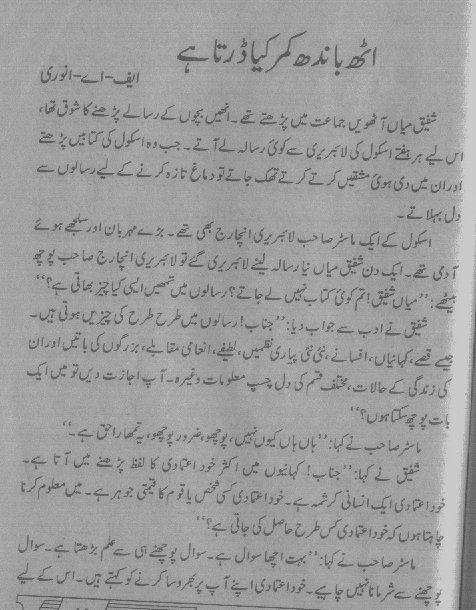 اٹھ باندھ کمر کیا ڈرتا ہے
ایف-اے-انوری
شفیق میاں آٹھویں جماعت میں پڑھتے تھے۔ انھیں بچوں کے رسالے پڑھنے کا شوق تھا،
اس لیے ہر ہفتے اسکول کی لائبریری سے کوئی رسالہ لے آتے۔ جب وہ اسکول کی کتابیں پڑھتے
اور ان میں دی ہوئی مشقیں کرتے کرتے تھک جاتے تو دماغ تازہ کرنے کے لیے رسالوں سے
دل بہلاتے۔
اسکول کے ایک ماسٹر صاحب لائبریری انچارج بھی تھے۔ بڑے مہربان اور سلجھے ہوئے
آدمی تھے۔ ایک دن شفیق میاں نیا رسالہ لینے لائبریری گئے تو لائبریری انچارج صاحب پوچھ
بیٹھے: ”میاں شفیق! تم کوئی کتاب نہیں لے جاتے؟ رسالوں میں تمھیں ایسی کیا چیز بھاتی ہے؟“
شفیق نے ادب سے جواب دیا: ”جناب! رسالوں میں طرح طرح کی چیزیں ہوتی ہیں۔
جیسے قصے، کہانیاں، افسانے، نئی نئی پیاری نظمیں، لطیفے، انعامی مقابلے، بزرگوں کی باتیں اور ان
کی زندگی کے حالات، مختلف قسم کی دل چسپ معلومات وغیرہ۔ آپ اجازت دیں تو میں ایک
بات پوچھ سکتا ہوں؟“
ماسٹر صاحب نے کہا: ”ہاں ہاں کیوں نہیں، پوچھو، ضرور پوچھو، یہ تمھارا حق ہے۔“
شفیق نے کہا: ”جناب! کہانیوں میں اکثر خود اعتمادی کا لفظ پڑھنے میں آتا ہے۔
خود اعتمادی ایک انسانی کرشمہ ہے۔ خود اعتمادی کسی شخص یا قوم کا قیمتی جوہر ہے۔ میں معلوم کرنا
چاہتا ہوں کہ خود اعتمادی کس طرح حاصل کی جاتی ہے؟“
ماسٹر صاحب نے کہا: ”بہت اچھا سوال ہے۔ سوال پوچھنے ہی سے علم بڑھتا ہے۔ سوال
پوچھنے سے شرمانا نہیں چاہیے۔ خود اعتمادی اپنے آپ پر بھروسا کرنے کو کہتے ہیں۔ اس کے لیے